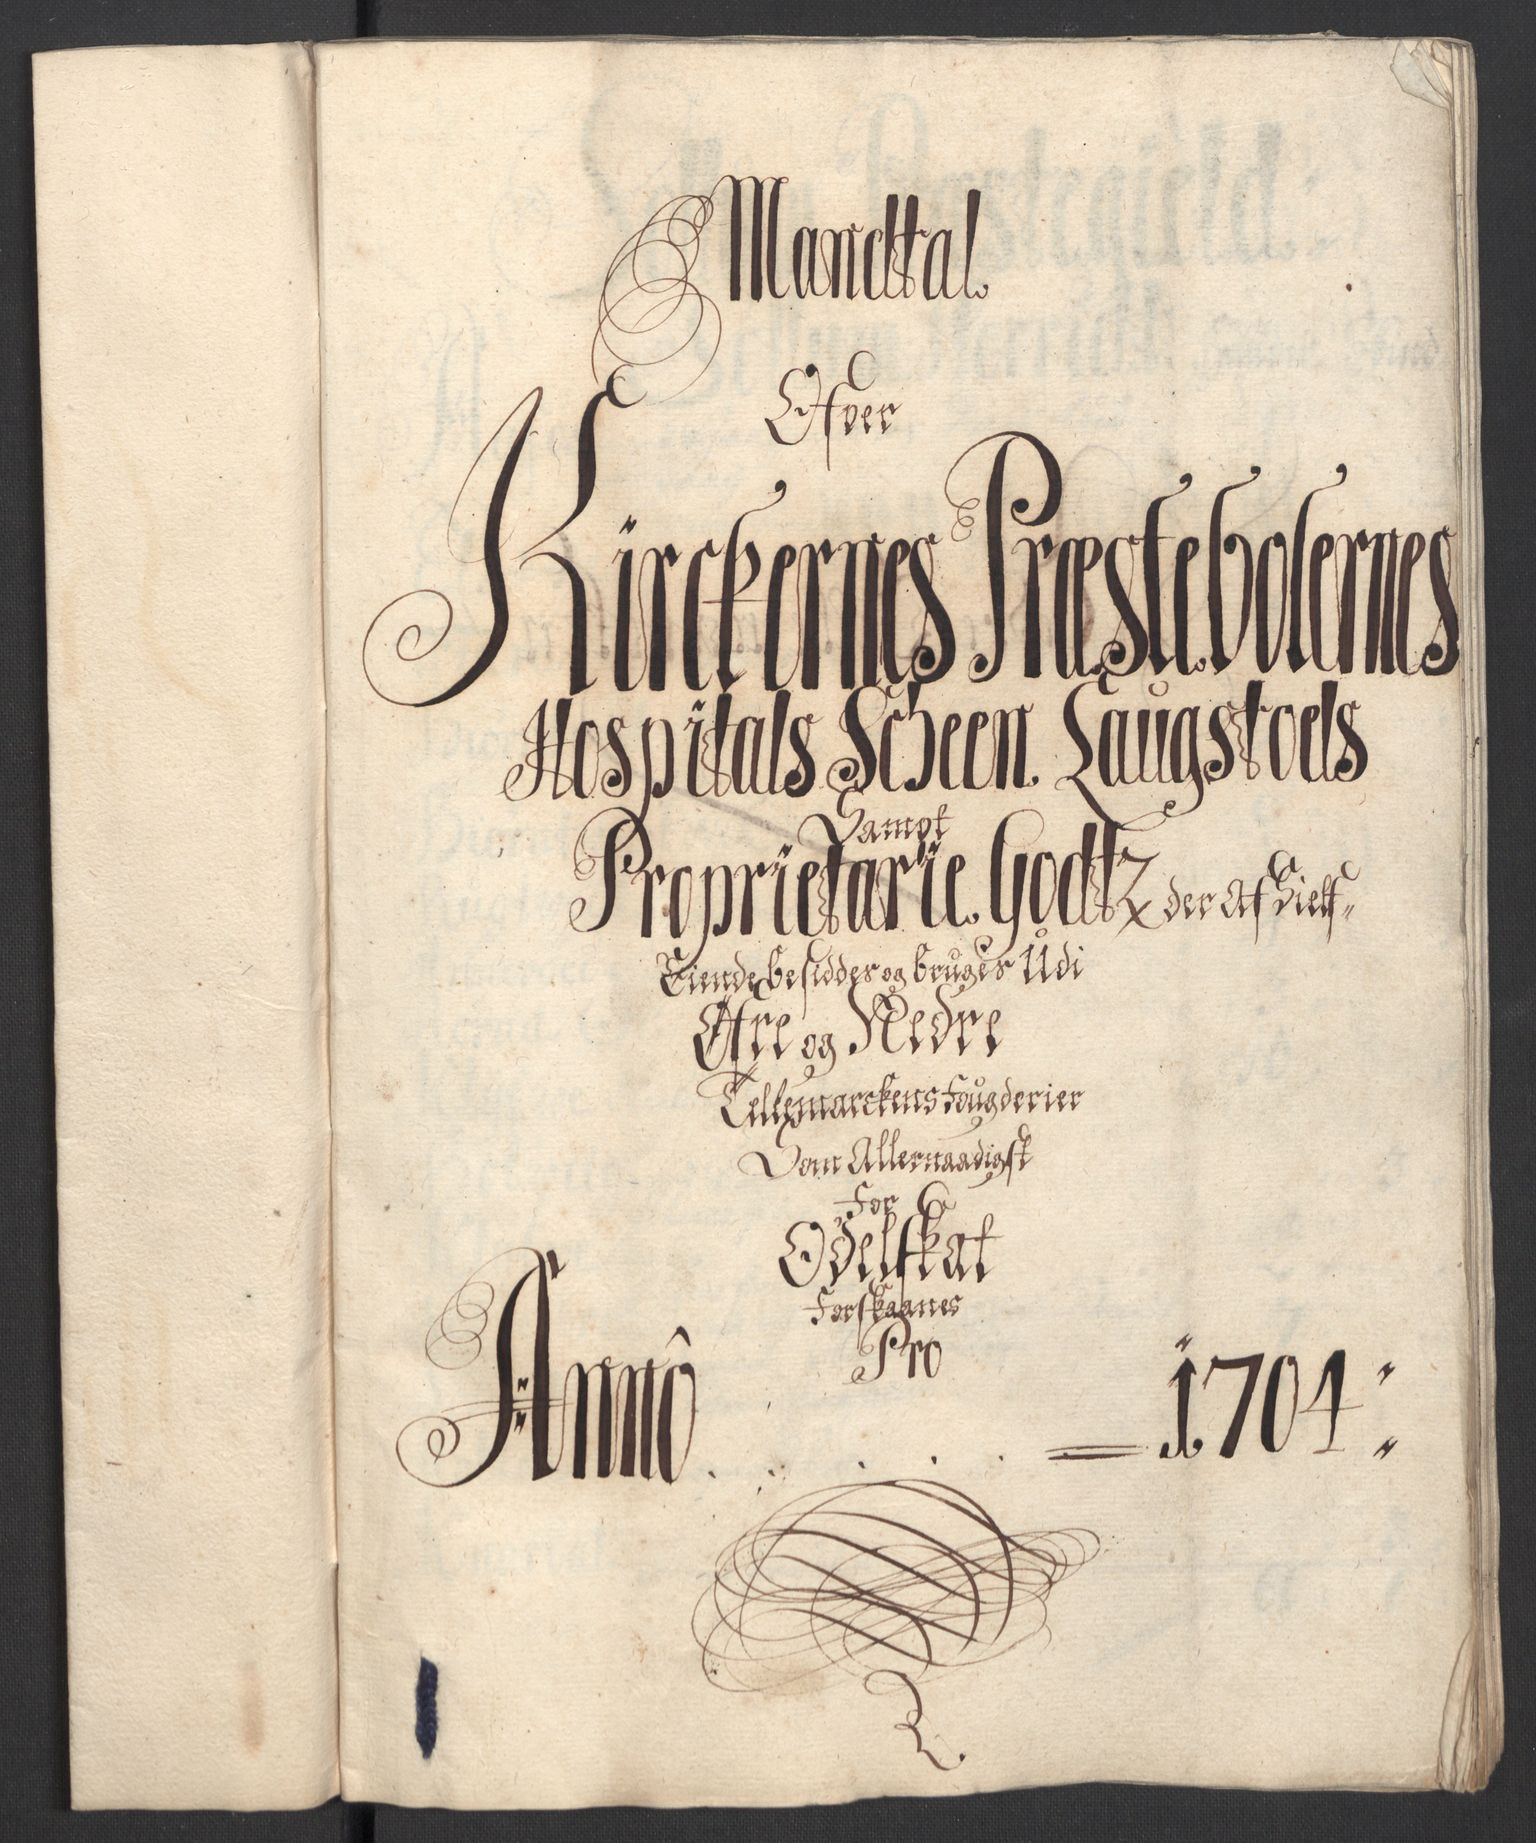 Mandtal
Ofver
Kirckernes Præstebolernes
Hospitals Scheen Laugstoels
Sampt
Proprietarie Godtz der af Sielf
Eiende besidder og bruges Udi
Øfre og Nedre
Tellemarckens fougderier
Som Allernaadigst
for
Odelskat
forskaanes
Pro
Annô 1704